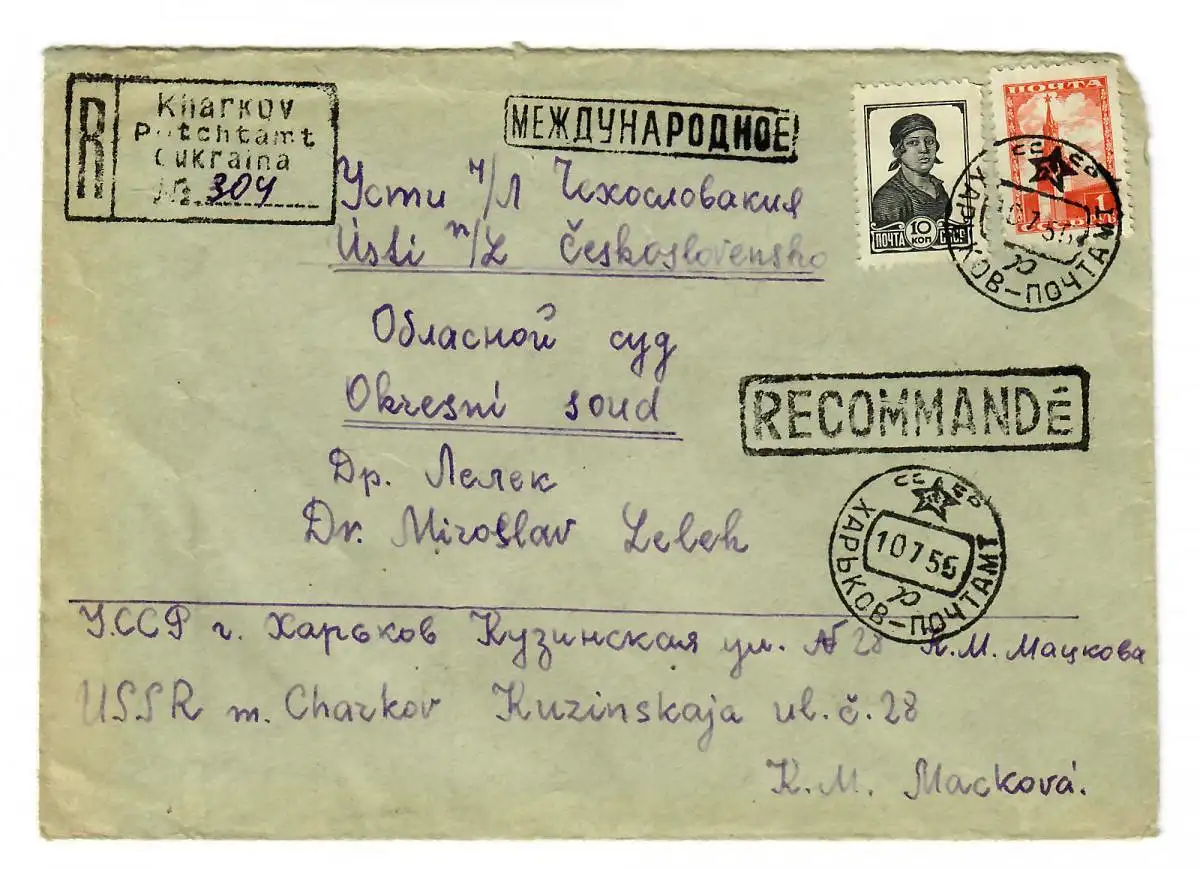 R
Kharkov
Potchtamt
Oukraina
№ 304
МЕЖДУНАРОДНОЕ
ПОЧТА
10 КОП
ПОЧТА СССР
1
Усти н/Л Чехословакия
Ústi n/L Československo
ХАРЬКОВ-ПОЧТАМТ
Обласной суд
Okresní soud
RECOMMANDÉ
Др. Лелек
Dr. Miroslav Lelek
ХАРЬКОВ-ПОЧТАМТ
10 7 56
УССР г. Харьков Кузинская ул. № 28 К.М. Мацкова
USSR m. Charkov Kuzinskaja ul. č. 28
K. M. Macková.